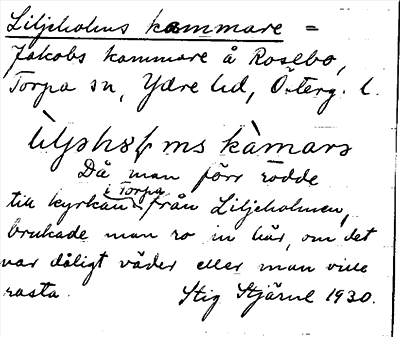 Liljeholms kammare =
Jakobs kammare å Rosebo,
Torpa sn, Ydre hd, Österg. l.
kàmarə
Då man förr rodde
till kyrkan i Torpa från Liljeholmen,
brukade man ro in här, om det
var dåligt väder eller man ville
rasta. Stig Stjärne 1930.